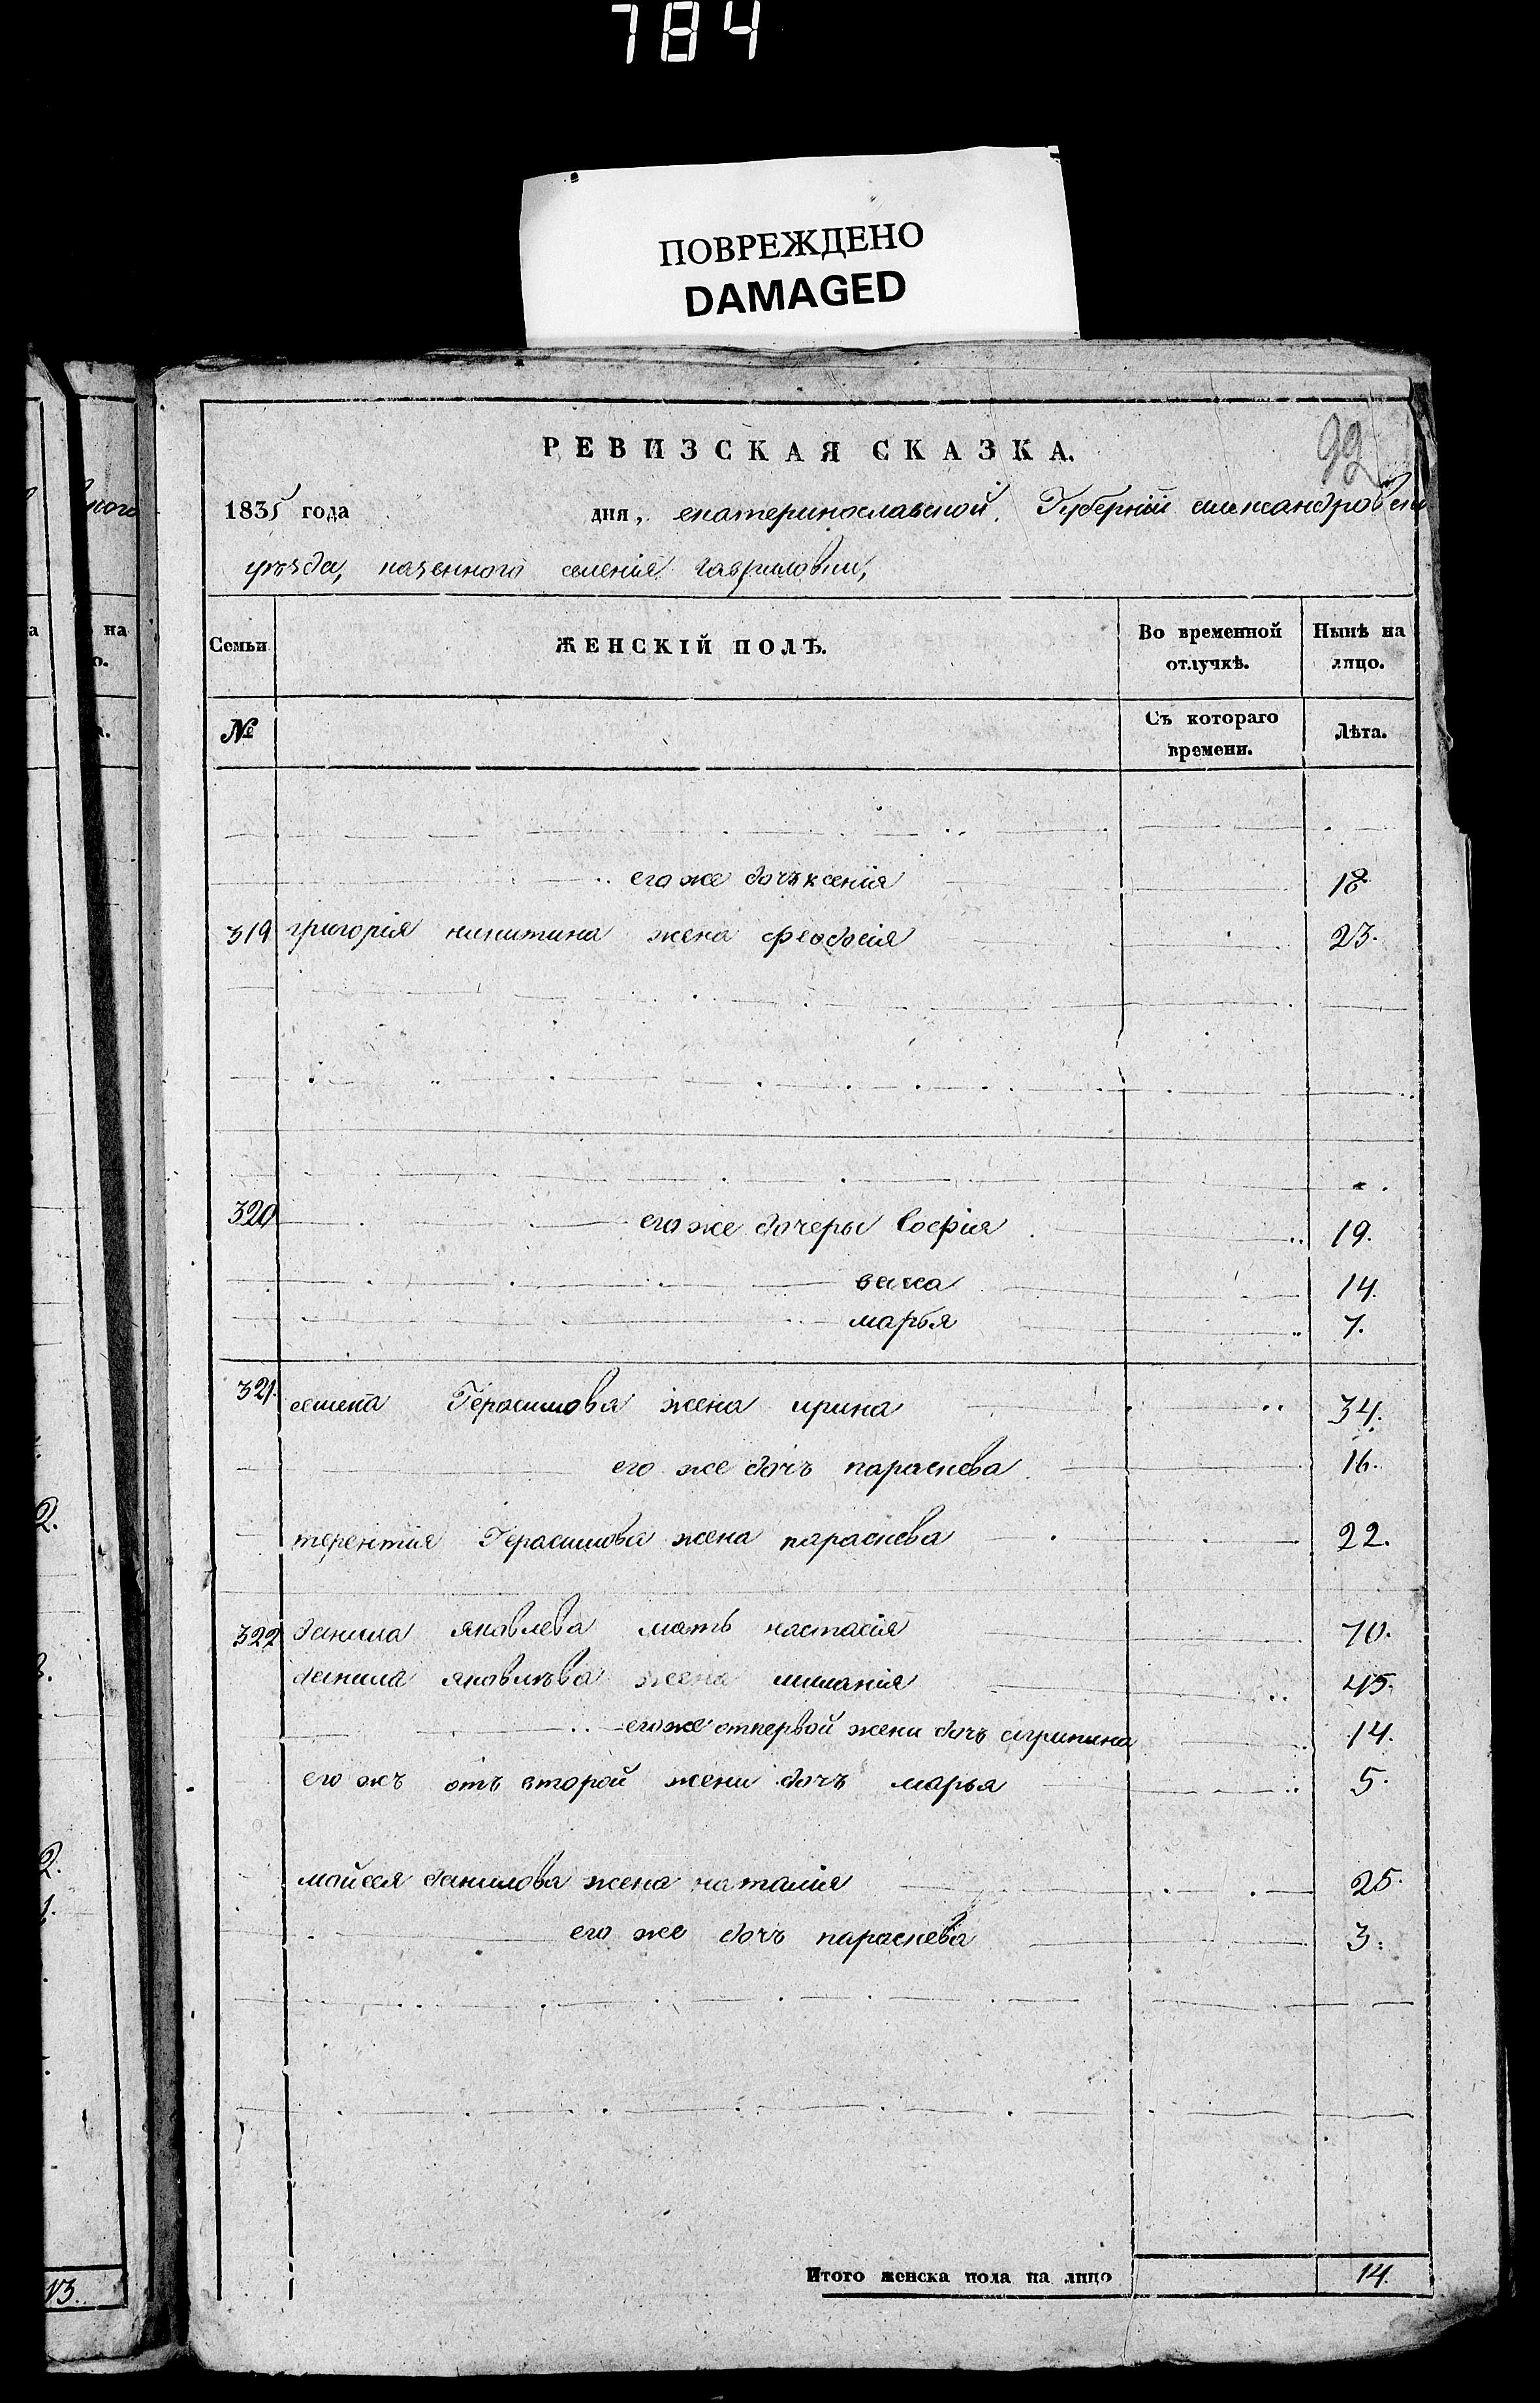 784
ПОВРЕЖДЕНО
DAMAGED
РЕВИЗСКАЯ СКАЗКА.
92
1835 года дня, екатеринославской Губерніи александровск
уѣзда, казенного селенія гавриловки,
Семьи ЖЕНСКІЙ ПОЛЪ. Во временной отлучкѣ. Нынѣ на лицо.
№ Съ котораго времени. Лѣта.
его же дочь ксенія 18
319 григорія никитина жена феодосія 23.
320 его же дочеры Софія 19.
васса 14.
марья 7.
321. семена Герасимова жена ирина 34.
его же дочъ параскева 16.
терентія Герасимова жена параскева 22.
322 данила яковлева мать настасія 70.
данила яковлѣва жена меланія 45.
его же отпервой жени дочъ агрипина 14.
его жъ отъ второй жени дочъ марья 5.
мойсея данилова жена наталія 25.
его же дочъ параскева 3.
Итого женска пола на лицо 14.
на
о.
а
2.
2.
13.